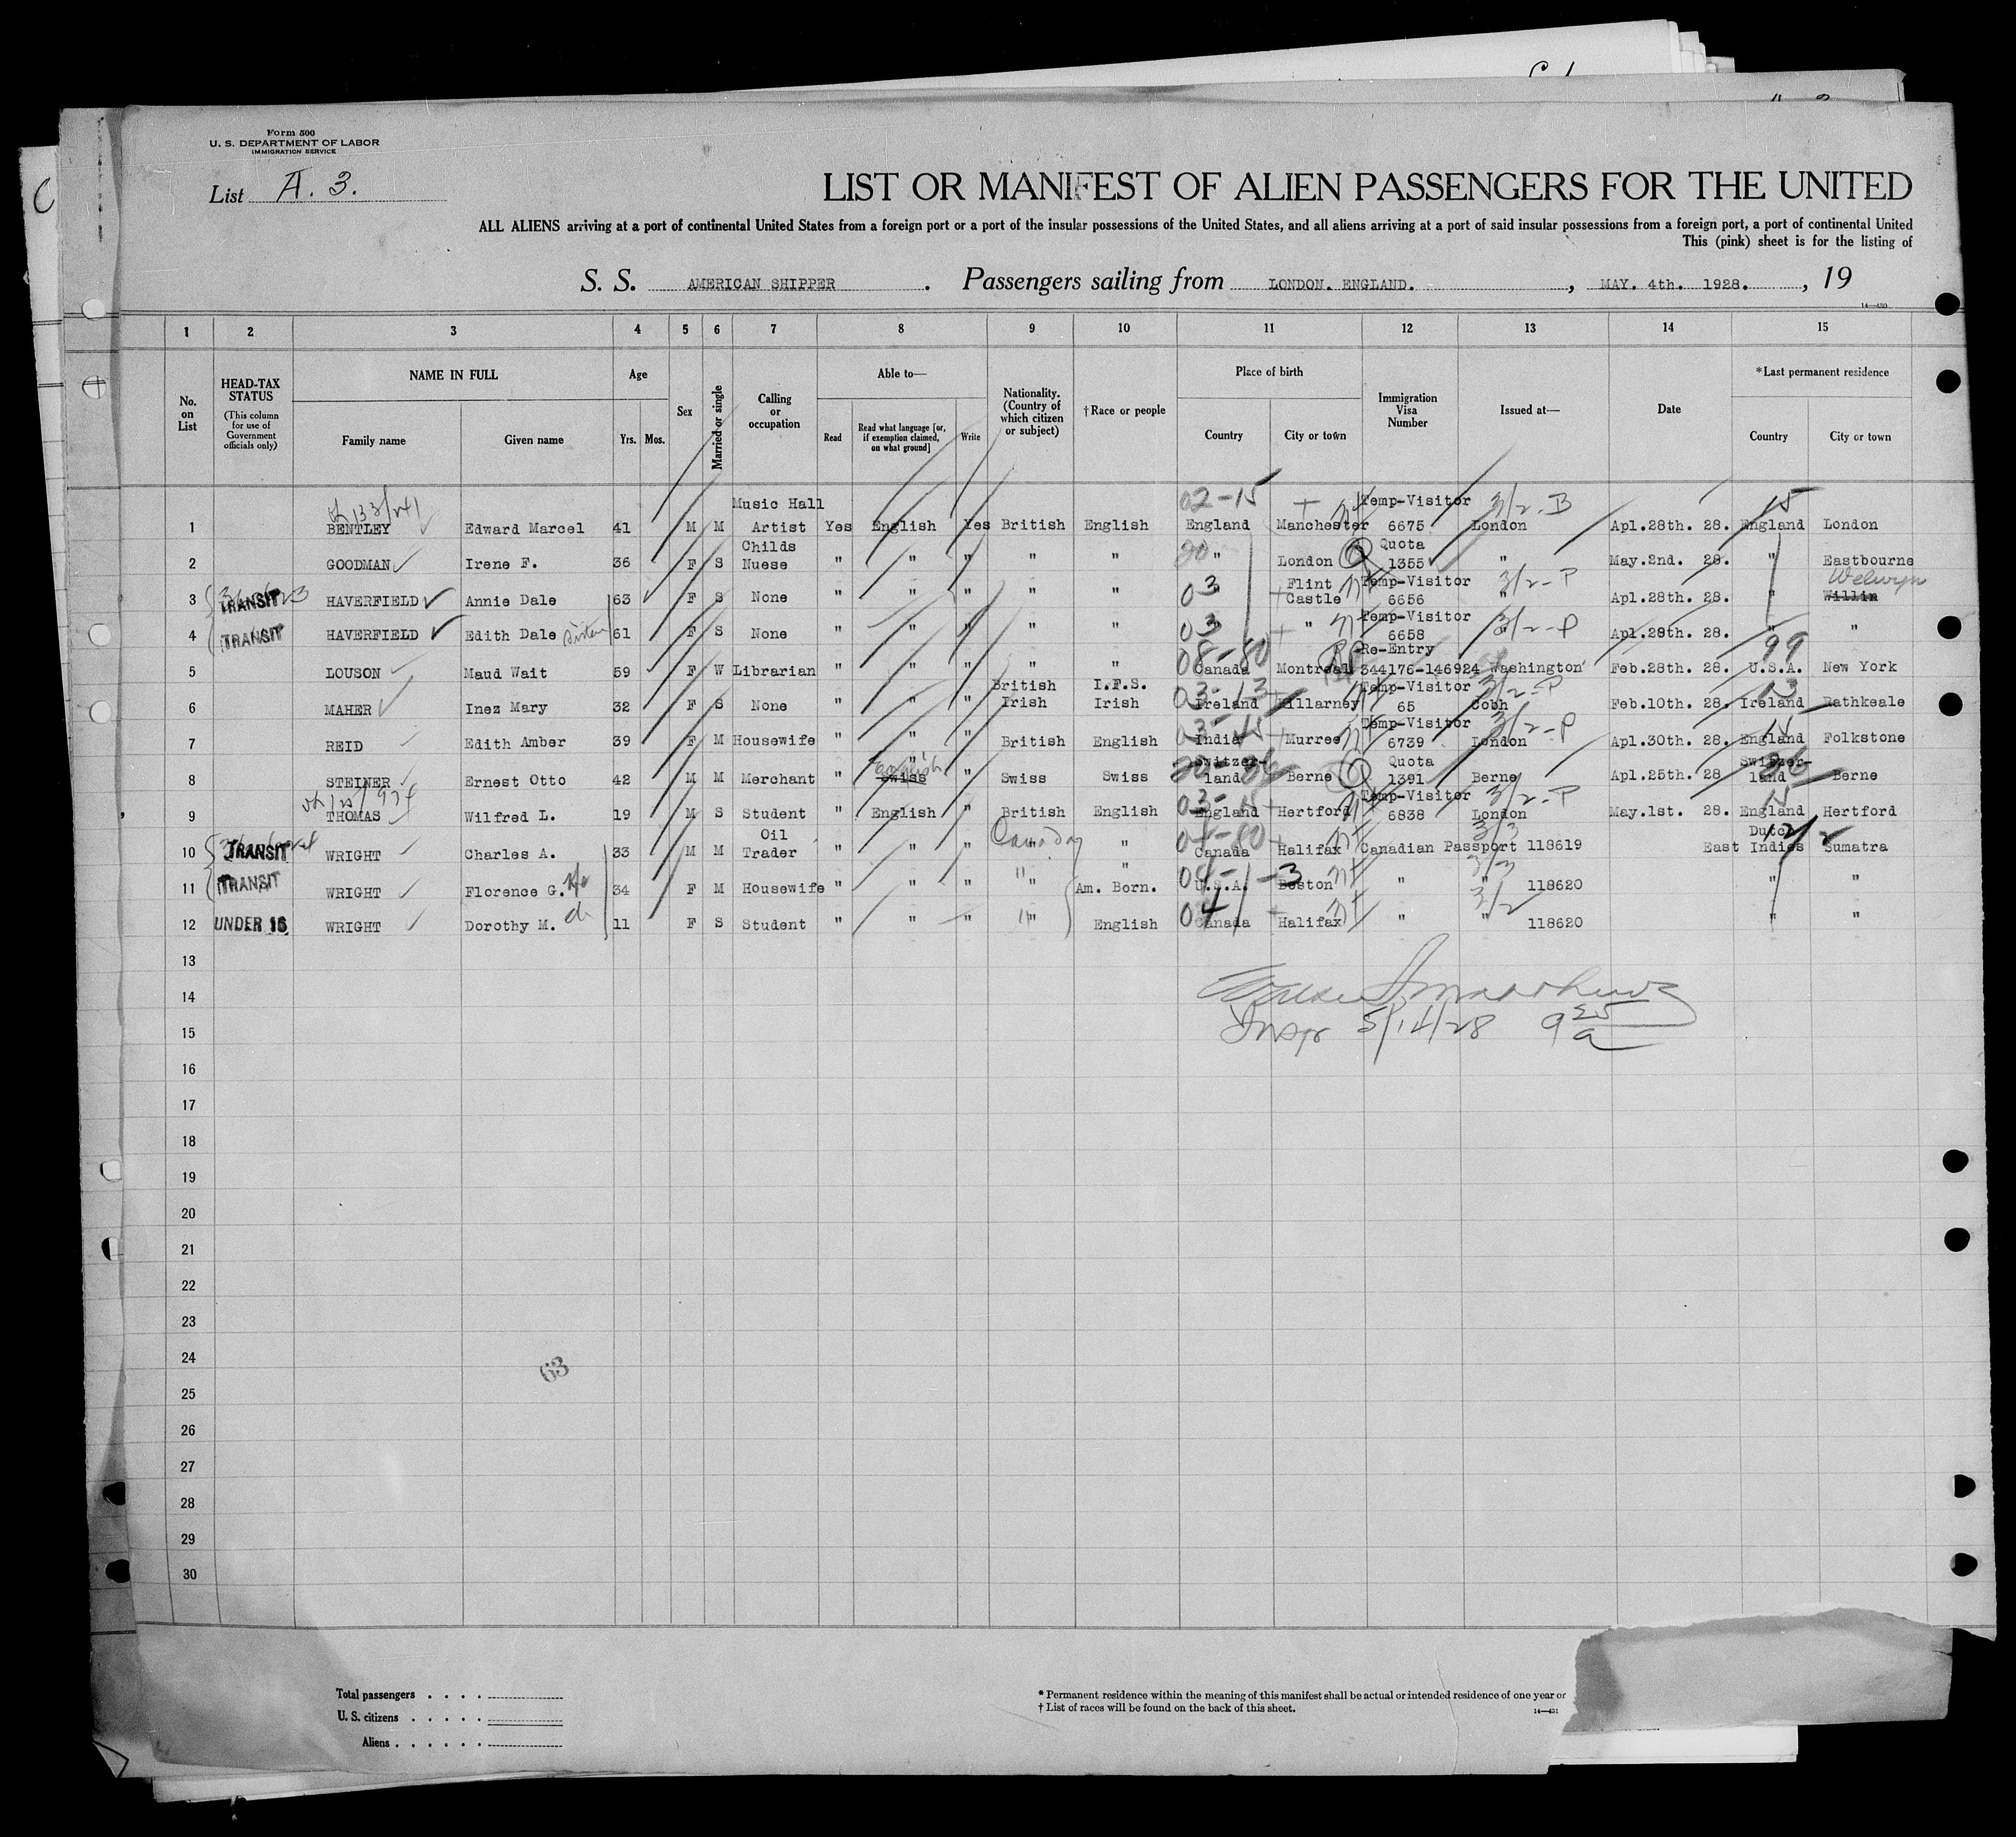 Form 500
U. S. DEPARTMENT OF LABOR
IMMIGRATION SERVICE
List A. 3.
LIST OR MANIFEST OF ALIEN PASSENGERS FOR THE UNITED
ALL ALIENS arriving at a port of continental United States from a foreign port or a port of the insular possessions of the United States, and all aliens arriving at a port of said insular possessions from a foreign port, a port of continental United
This (pink) sheet is for the listing of
S. S. AMERICAN SHIPPER . Passengers sailing from LONDON. ENGLAND. , MAY. 4th. 1928. , 19
14—430
1 2 3 4 5 6 7 8 9 10 11 12 13 14 15
No. on List
HEAD-TAX STATUS (This column for use of Government officials only)
NAME IN FULL Family name Given name
Age Yrs. Mos.
Sex
Married or single
Calling or occupation
Able to— Read Read what language [or, if exemption claimed, on what ground] Write
Nationality. (Country of which citizen or subject)
†Race or people
Place of birth Country City or town
Immigration Visa Number
Issued at—
Date
*Last permanent residence Country City or town
Music Hall 02-15 Temp-Visitor 3/2-B 15
1 BENTLEY Edward Marcel 41 M M Artist Yes English Yes British English England Manchester 6675 London Apl.28th. 28. England London
Childs Quota
2 GOODMAN Irene F. 36 F S Nuese " " " " " 20 " London 1355 " May.2nd. 28. " Eastbourne
Flint Temp-Visitor 3/2-P Welwyn
3 TRANSIT HAVERFIELD Annie Dale 63 F S None " " " " " 03 " Castle 6656 " Apl.28th. 28. " Willin
Temp-Visitor
4 TRANSIT HAVERFIELD Edith Dale Sister 61 F S None " " " " " 03 " " 6658 " 3/2-P Apl.28th. 28. " "
08-80 Re-Entry 99
5 LOUSON Maud Wait 59 F W Librarian " " " " " Canada Montreal 344176-146924 Washington Feb.28th. 28. U.S.A. New York
British I.F.S. 03-13 Temp-Visitor 3/2-P 13
6 MAHER Inez Mary 32 F S None " " " Irish Irish Ireland Killarney 65 Cobh Feb.10th. 28. Ireland Rathkeale
03-15 Temp-Visitor 3/2-P 15
7 REID Edith Amber 39 F M Housewife " " " British English India Murree 6739 London Apl.30th. 28. England Folkstone
English Switzer- Quota Switzer-
8 STEINER Ernest Otto 42 M M Merchant " Swiss " Swiss Swiss 20-26 land Berne 1391 Berne Apl.25th. 28 26 land Berne
03-15 Temp-Visitor 3/2-P 15
9 THOMAS Wilfred L. 19 M S Student " English " British English England Hertford 6838 London May.1st. 28. England Hertford
Oil Canada 04-80 3/3 Dutch
10 TRANSIT WRIGHT Charles A. 33 M M Trader " " " " " Canada Halifax Canadian Passport 118619 East Indies Sumatra
" 04-1-3 3/3
11 TRANSIT WRIGHT Florence G. 34 F M Housewife " " " " Am. Born. U.S.A. Boston " " 118620 " "
04 3/2
12 UNDER 16 WRIGHT Dorothy M. d 11 F S Student " " " " English Canada Halifax " " 118620 " "
13
14
Insp 5/14/28 9 25 a
15
16
17
18
19
20
21
22
23
24
63
25
26
27
28
29
30
Total passengers . . . .
U. S. citizens . . . . .
Aliens . . . . . .
* Permanent residence within the meaning of this manifest shall be actual or intended residence of one year or
† List of races will be found on the back of this sheet.
14—431